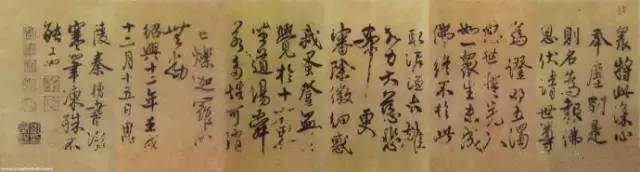 將此深心
奉塵剎是
則名為報佛
恩伏請世尊
為證明五濁
惡世誓先入
如一衆生未成
佛終不於此
取泥洹大雄
大力大慈悲
希更
審除微細惑
我蚤登無上
覺於十方界
坐道場舜
若多性可消
亡爍迦羅心
無動
紹興十二年壬戌
十二月十五日
陵秦檜書
寒筆凍殊不
能工